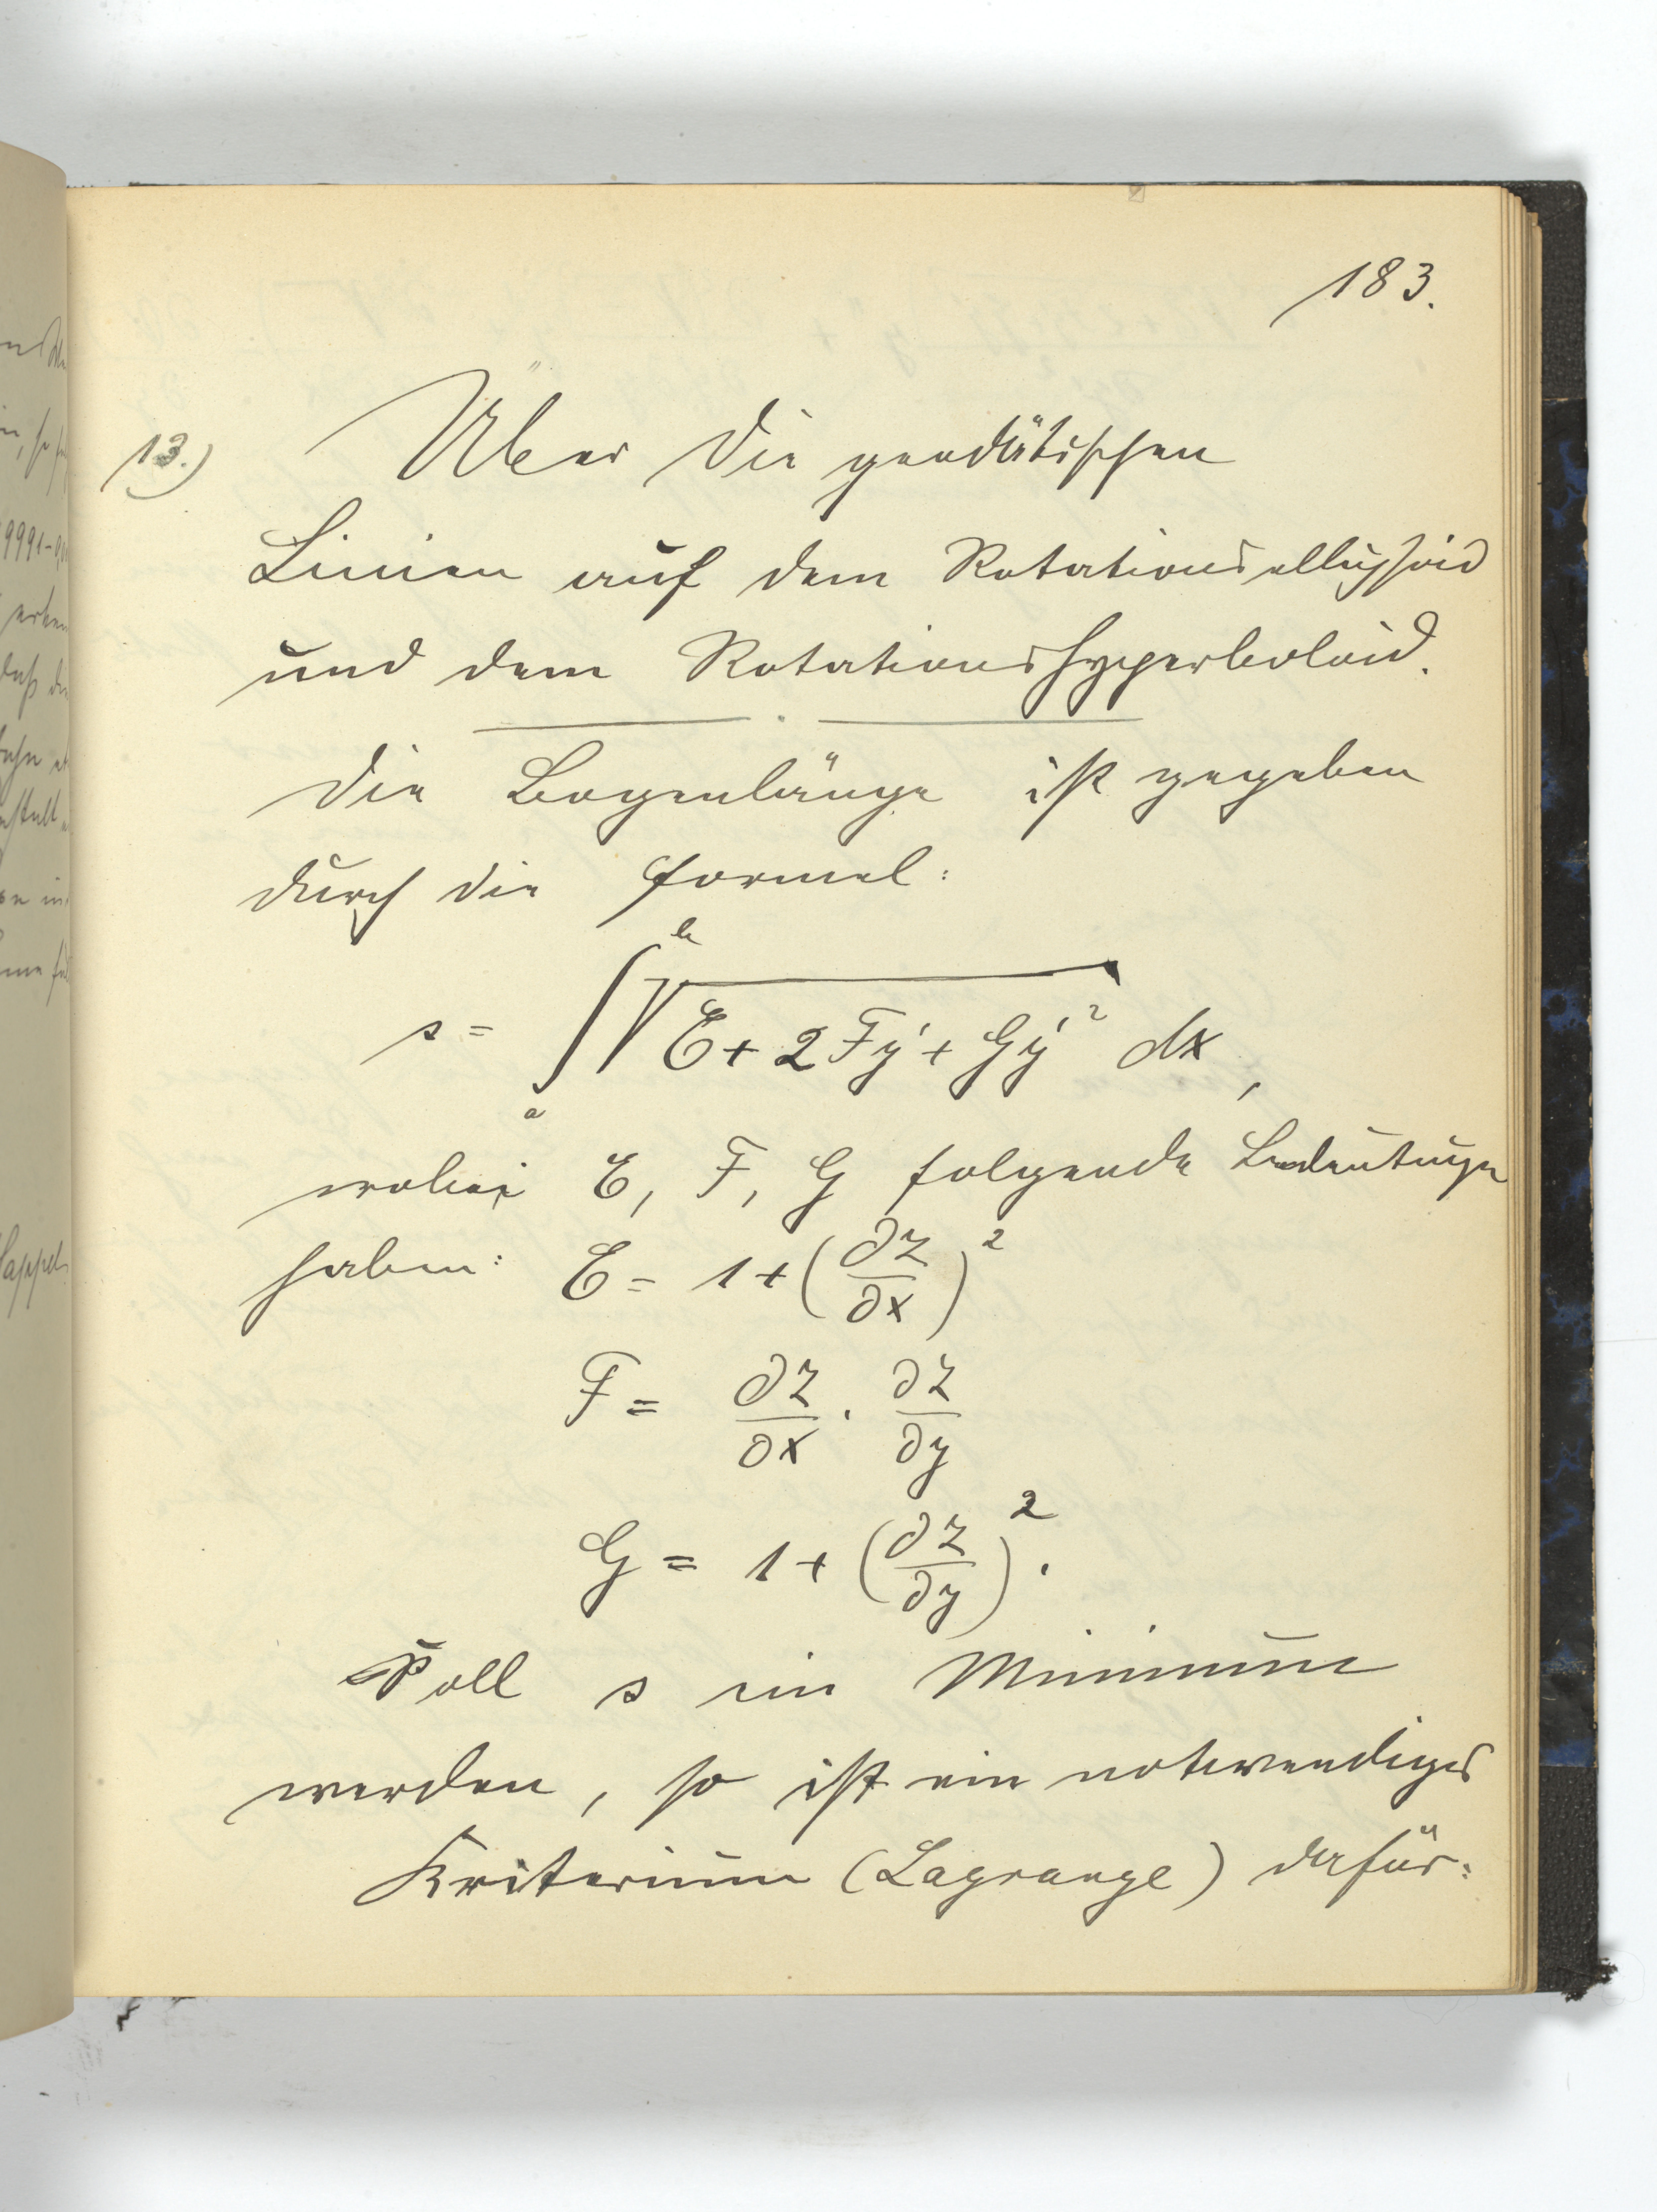 183.
13.) Über die geodätischen
Linien auf dem Rotationsellipsoid
und dem Rotationshyperboloid.
Die Bogenlänge ist gegeben
durch die Formel:
s = ∫_a^b √(E + 2Fy' + Gy'²) dx,
wobei E, F, G folgende Bedeutungen
haben: E = 1 + (∂z/∂x)²
F = ∂z/∂x · ∂z/∂y
G = 1 + (∂z/∂y)².
Soll s ein Minimum
werden, so ist ein notwendiges
Kriterium (Lagrange) dafür: